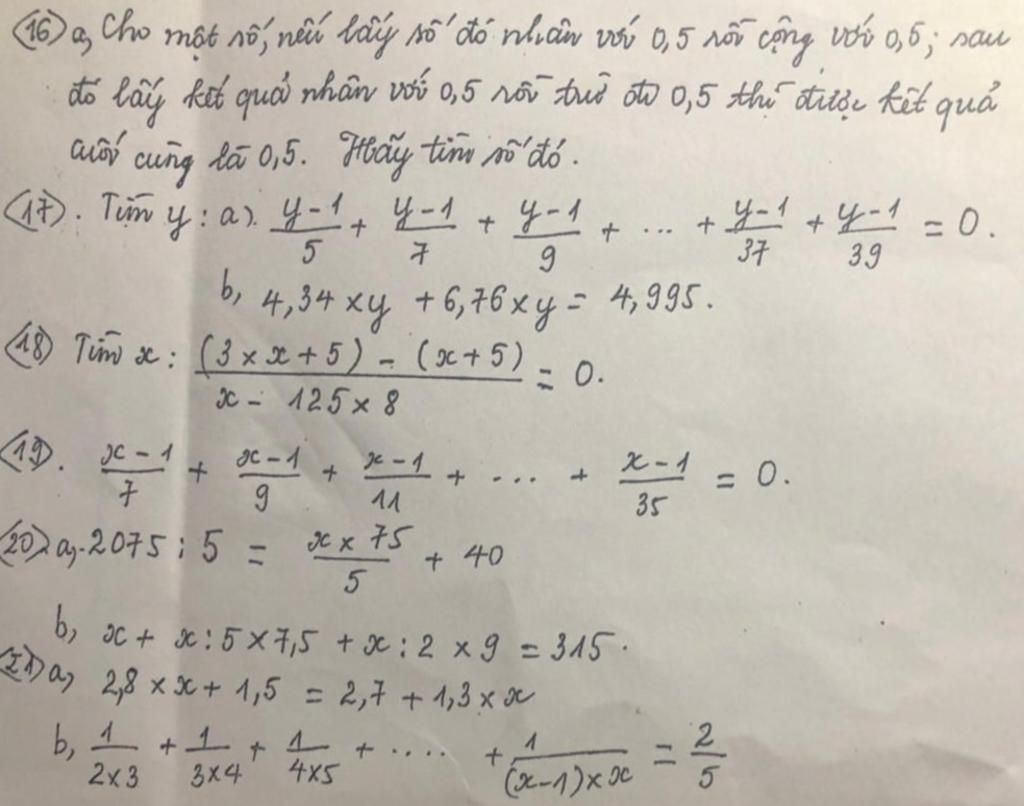 (16) a, Cho một số, nếu lấy số đó nhân với 0,5 rồi cộng với 0,5; sau
đó lấy kết quả nhân với 0,5 rồi trừ đi 0,5 thì được kết quả
cuối cùng là 0,5. Hãy tìm số đó.
(17). Tìm y: a). \frac{y-1}{5} + \frac{y-1}{7} + \frac{y-1}{9} + ... + \frac{y-1}{37} + \frac{y-1}{39} = 0.
b, 4,34 × y + 6,76 × y = 4,995.
(18) Tìm x: \frac{(3 × x + 5) - (x + 5)}{x - 125 × 8} = 0.
(19). \frac{x-1}{7} + \frac{x-1}{9} + \frac{x-1}{11} + ... + \frac{x-1}{35} = 0.
(20) a, 2075 : 5 = \frac{x × 75}{5} + 40
b, x + x : 5 × 7,5 + x : 2 × 9 = 315.
(21) a, 2,8 × x + 1,5 = 2,7 + 1,3 × x
b, \frac{1}{2×3} + \frac{1}{3×4} + \frac{1}{4×5} + .... + \frac{1}{(x-1)×x} = \frac{2}{5}